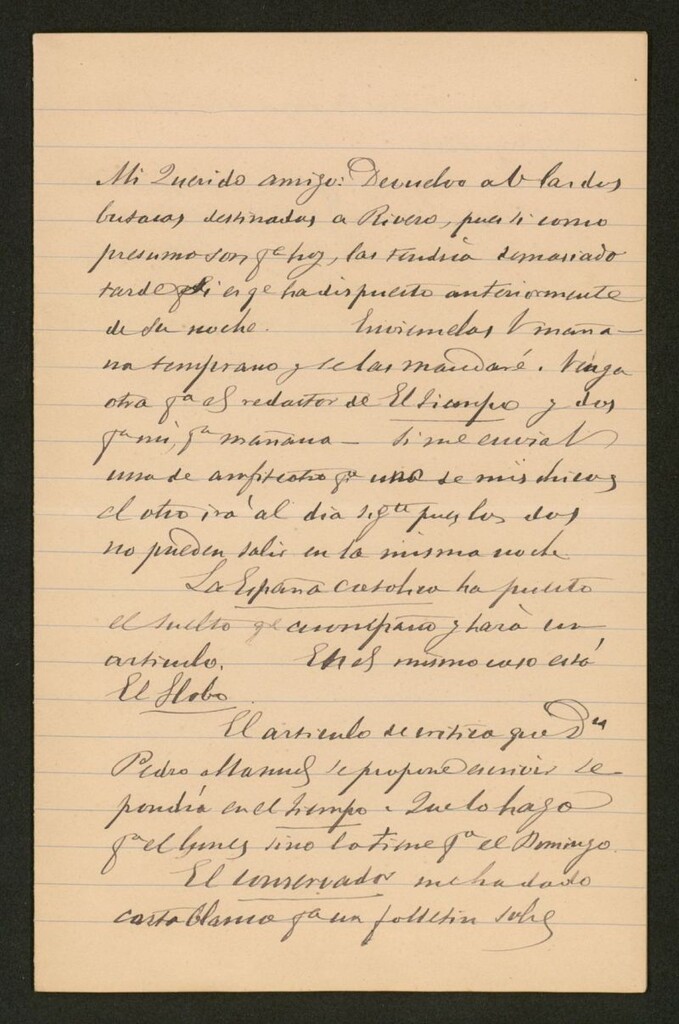 Mi Querido amigo: Devuelvo a V. las dos
butacas destinadas a Rivero, pues si como
presumo son pª hoy, las tendria demasiado
tarde si es qe ha dispuesto anteriormente
de su noche. Enviemelas V maña-
na temprano y se las mandaré. Venga
otra pª el redactor de El Tiempo y dos
pª mi, pª mañana — Si me envia V
una de anfiteatro pª uno de mis chicos
el otro irá al dia sigte pues los dos
no pueden salir en la misma noche
La España Catolica ha puesto
el suelto qe acompaño y hará un
articulo. En el mismo caso está
El Globo.
El articulo de critica que Dn
Pedro Manuel se propone escribir se
pondria en el Tiempo. Que lo haga
pª el lunes sino lo tiene pª el Domingo.
El Conservador me ha dado
carta blanca pª un folletin sobre